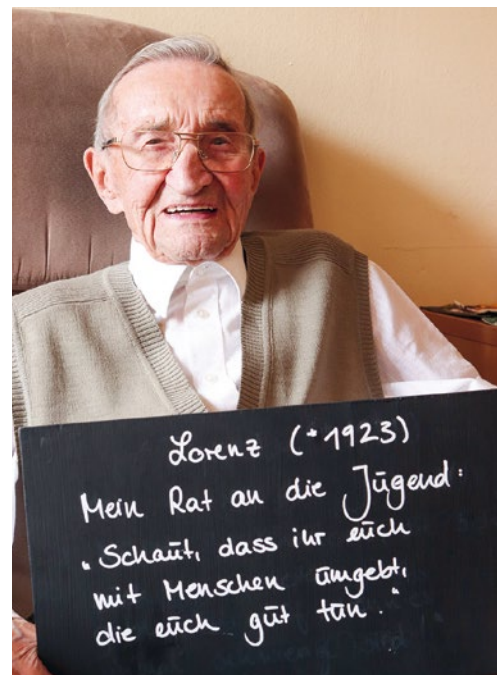 Lorenz (*1923)
Mein Rat an die Jugend:
"Schaut, dass ihr euch
mit Menschen umgebt,
die euch gut tun."